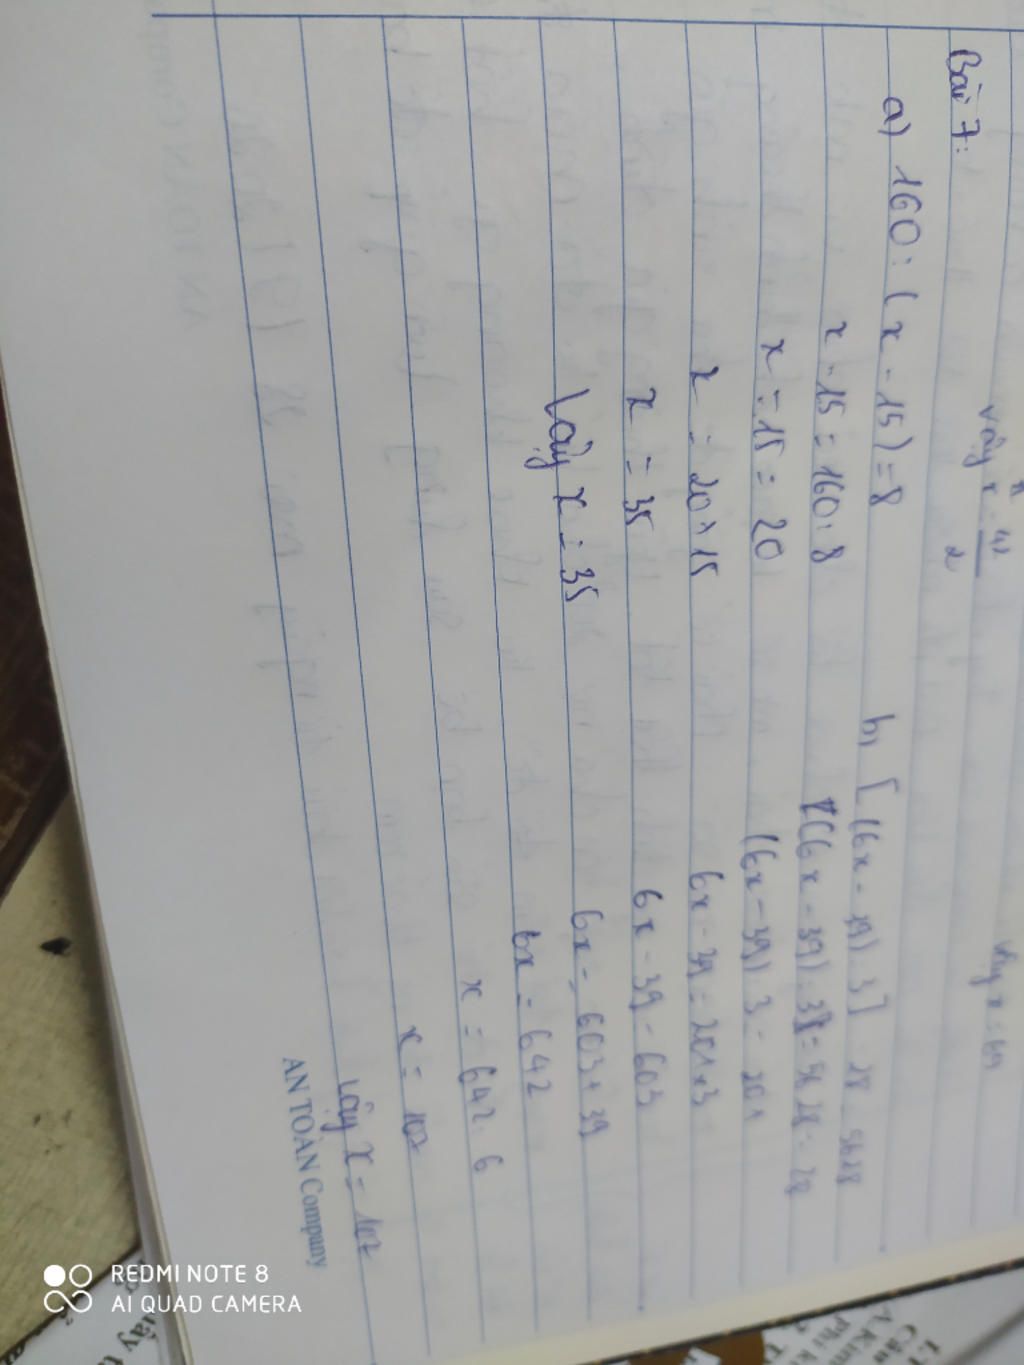 Vậy x = 42/2
Vậy x = 69
Bài 7:
a) 160 : ( x - 15 ) = 8
x - 15 = 160 : 8
x - 15 = 20
x = 20 + 15
x = 35
Vậy x = 35
b) [ (6x - 39) : 3 ] . 28 = 5628
[(6x - 39) : 3] = 5628 : 28
(6x - 39) : 3 = 201
6x - 39 = 201 x 3
6x - 39 = 603
6x = 603 + 39
6x = 642
x = 642 : 6
x = 107
Vậy x = 107
AN TOÀN Company
REDMI NOTE 8
AI QUAD CAMERA